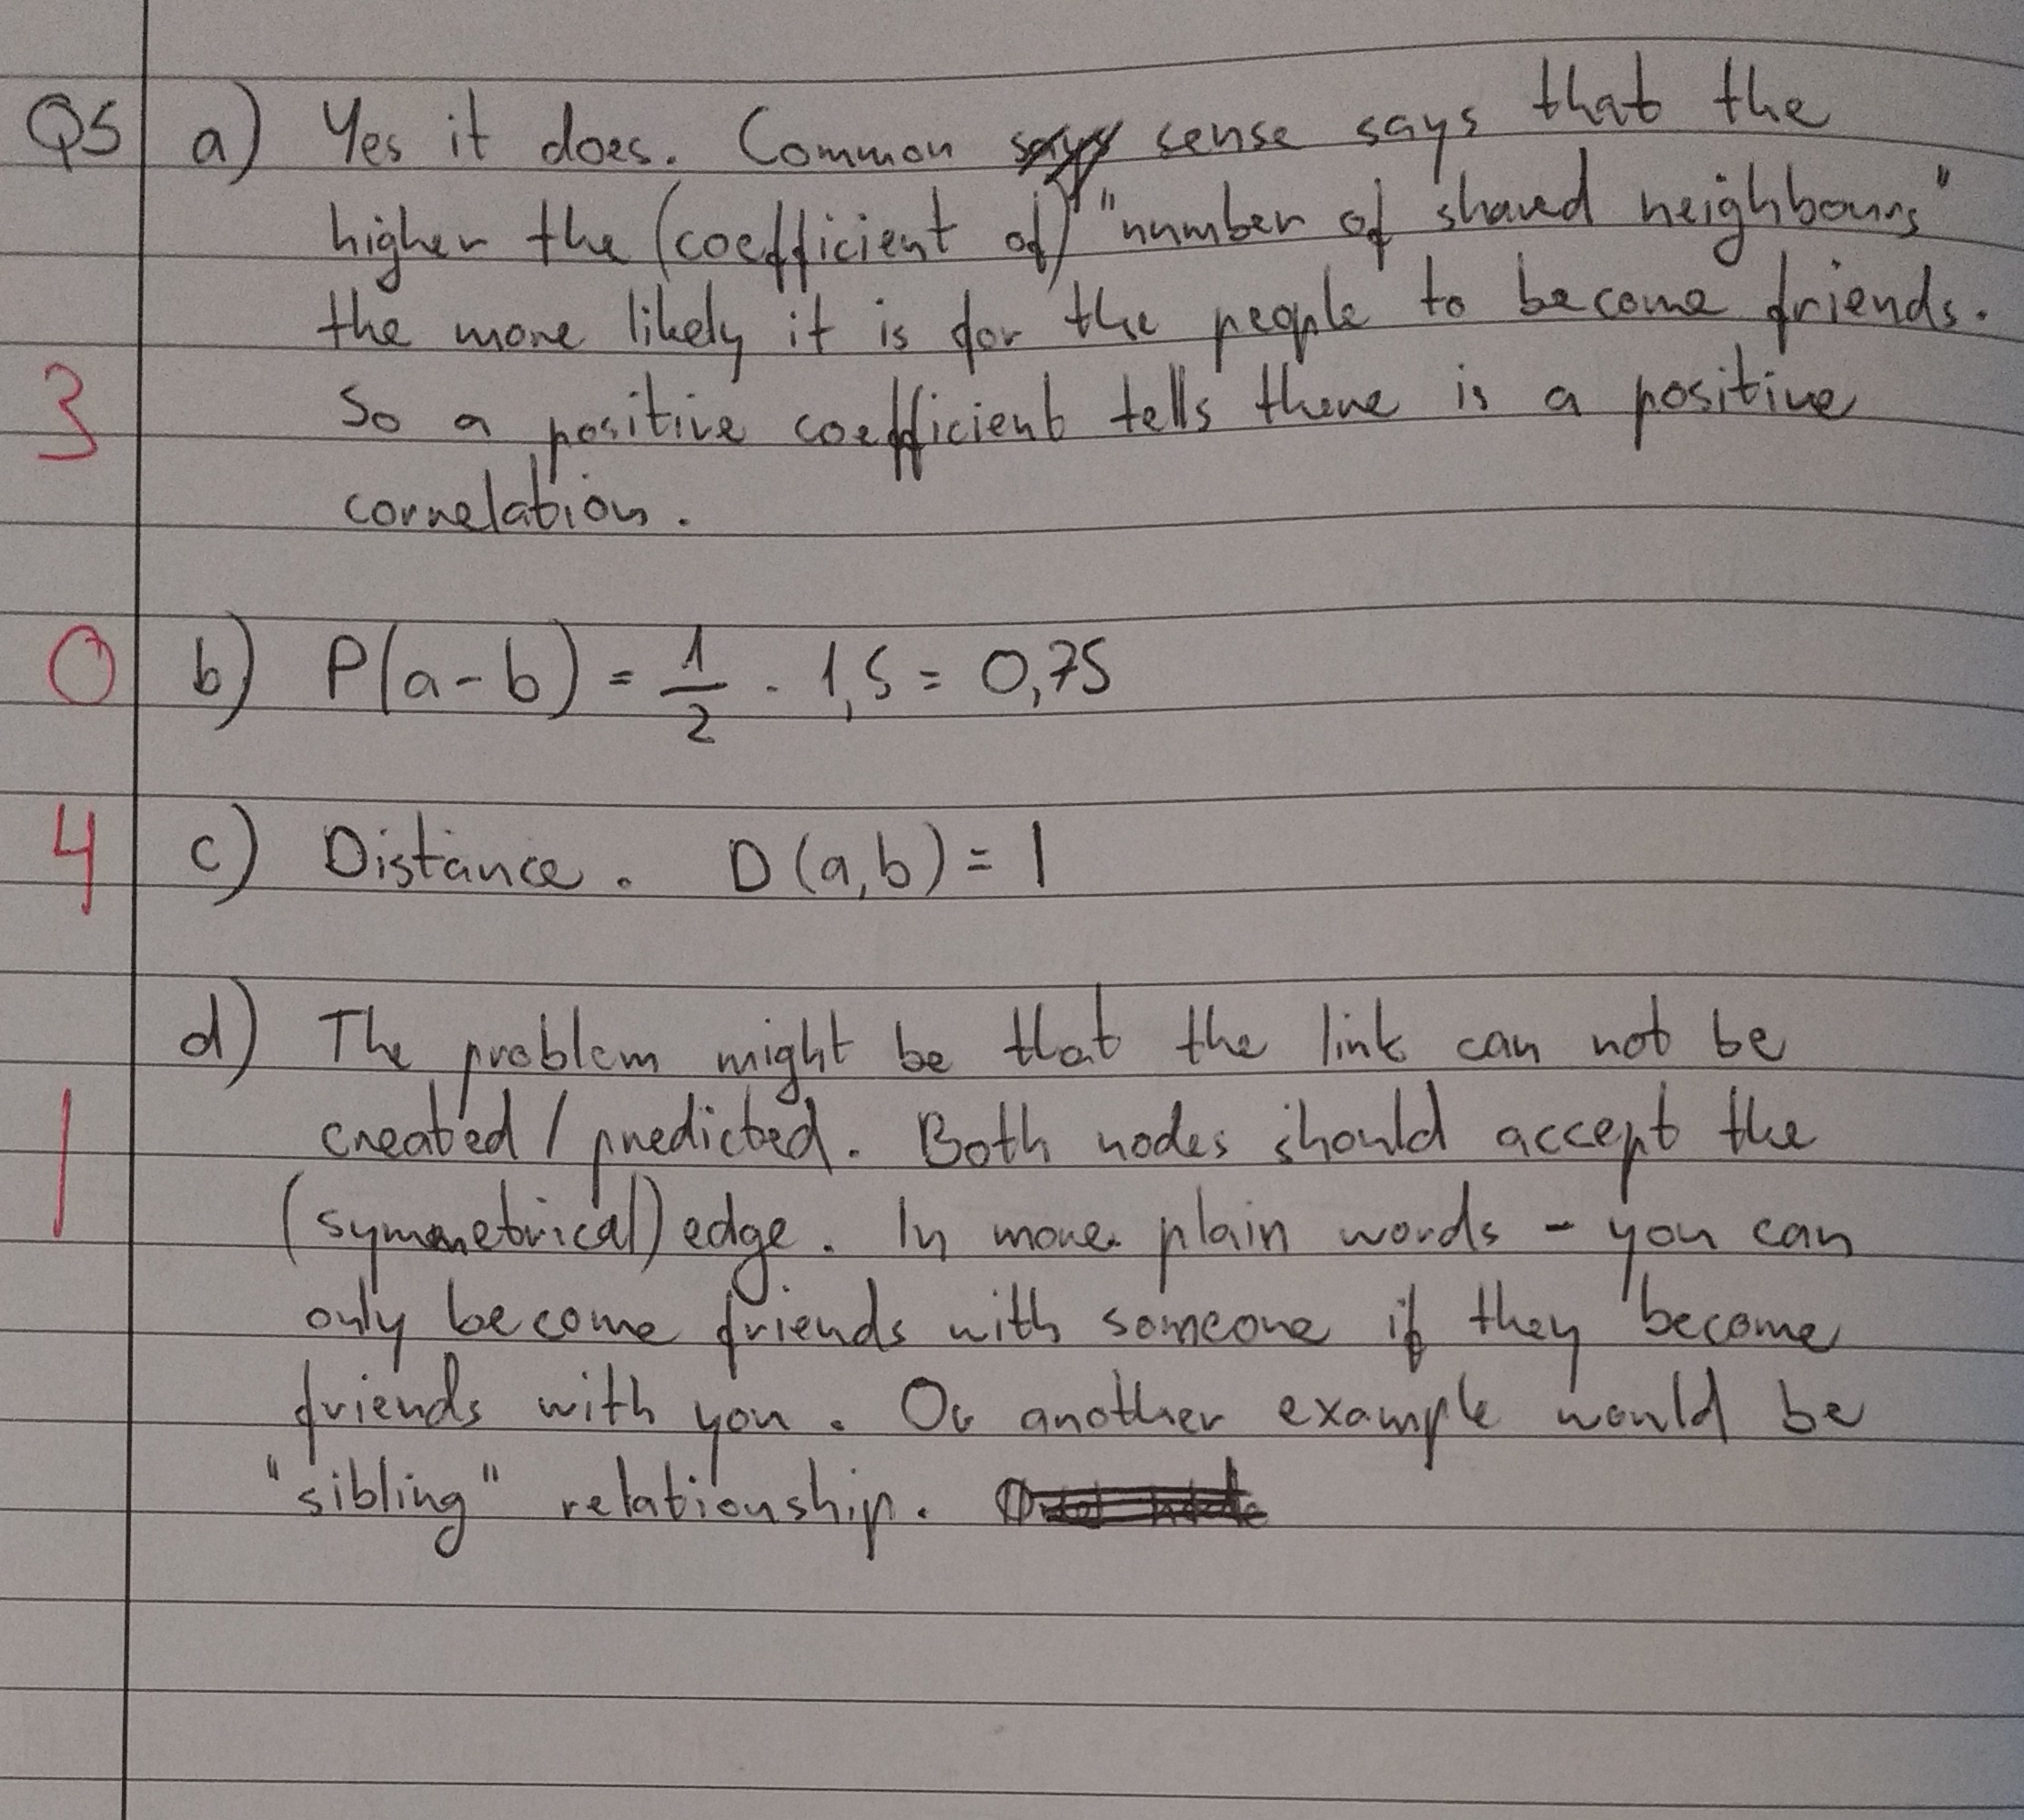 Q5 a) Yes it does. Common sense says that the
higher the (coefficient of) "number of shared neighbours"
the more likely it is for the people to become friends.
3 So a positive coefficient tells there is a positive
correlation.
0 b) P(a-b) = 1/2 · 1,5 = 0,75
4 c) Distance. D(a,b) = 1
d) The problem might be that the link can not be
1 created / predicted. Both nodes should accept the
(symmetrical) edge. In more plain words - you can
only become friends with someone if they become
friends with you. Or another example would be
"sibling" relationship.